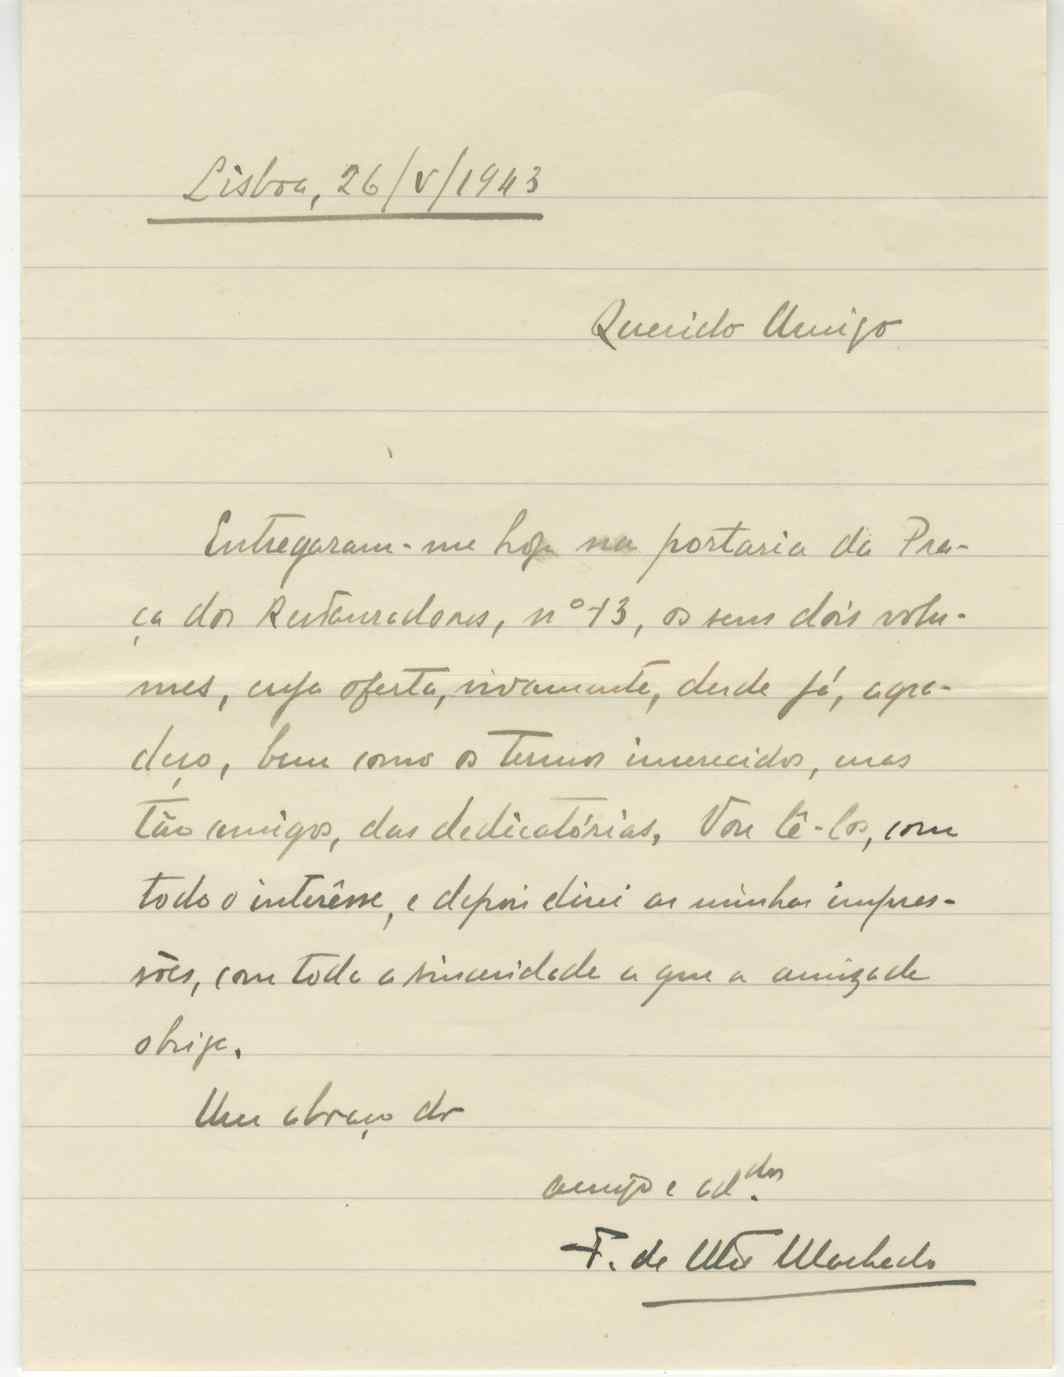 Lisboa, 26/V/1943
Querido Amigo
Entregaram-me hoje na portaria da Pra-
ça dos Restauradores, nº 13, os seus dois volu-
mes, cuja oferta, vivamente, desde já, agra-
deço, bem como os termos imerecidos, mas
tão amigos, das dedicatórias. Vou lê-los, com
todo o interêsse, e depois direi as minhas impres-
sões, com toda a sinceridade a que a amizade
obriga.
Um abraço do
amigo e add.or
F. de Machado